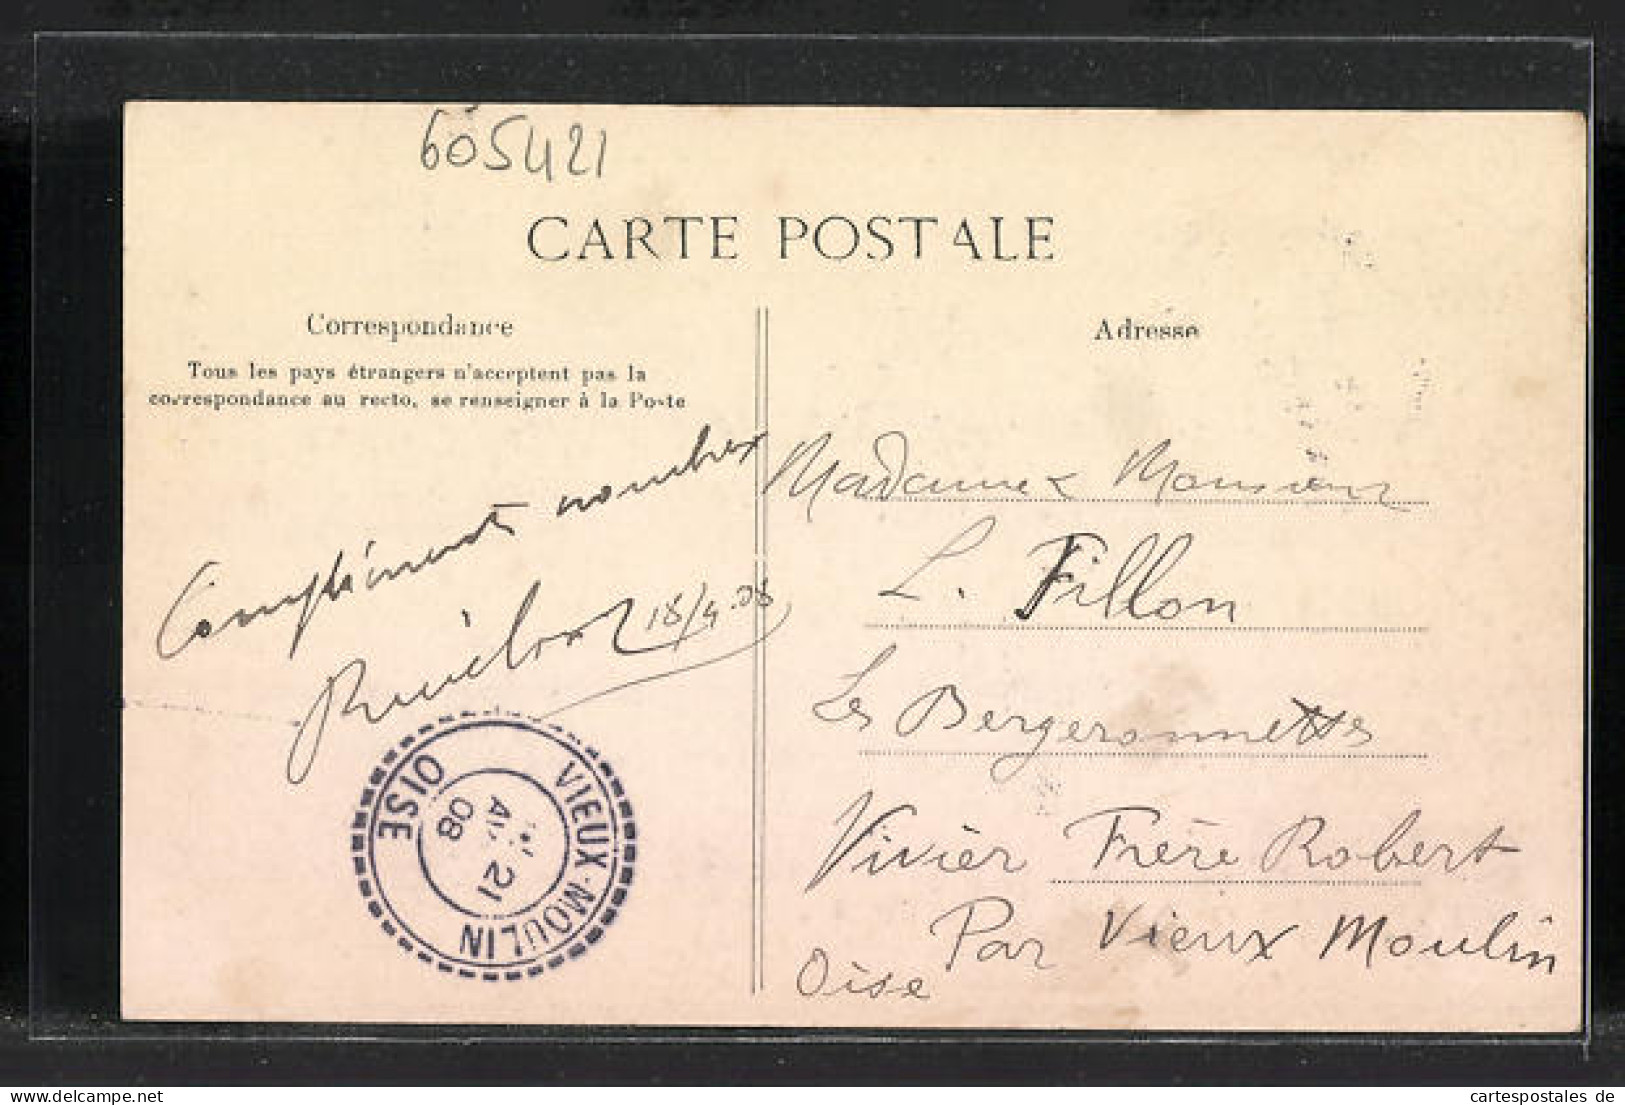 605421
CARTE POSTALE
Correspondance
Tous les pays étrangers n'acceptent pas la
correspondance au recto, se renseigner à la Poste
Compliments nombrex
18/4.08
OISE
VIEUX-MOULIN
21
08
Adresse
Madame & Monsieur
L. Fillon
Les Bergeronnettes
Vivier Frère Robert
Par Vieux Moulin
Oise
cartespostales de